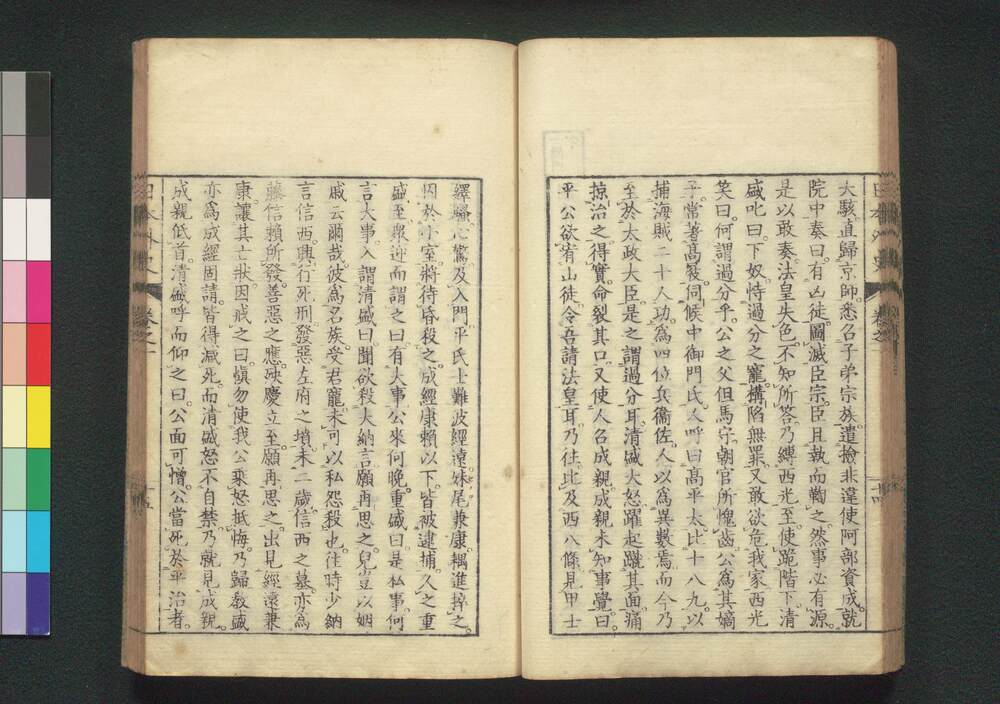 大駭直歸京師。悉召子弟宗族。遣撿非違使阿部資成。就
院中奏曰。有凶徒。圖滅臣宗。臣且執而鞫之。然事必有源。
是以敢奏。法皇失色。不知所答。乃縛西光至。使跪階下。清
盛叱曰。下奴恃過分之寵。構陷無罪。又敢欲危我家。西光
笑曰。何謂過分乎。公之父但馬守。朝官所愧齒。公爲其嫡
子。常著高屐。伺候中御門氏。人呼曰高平太。比十八九。以
捕海賊二十人功。爲四位兵衞佐。人以爲異數焉。而今乃
至於太政大臣。是之謂過分耳。清盛大怒。躍起蹴其面。痛
掠治之。得實。命裂其口。又使人召成親。成親未知事覺。曰。
平公欲宥山徒。令吾請法皇耳。乃往。比及西八條。見甲士
繹騷。心驚。及入門。平氏士難波經遠。妹尾兼康。耦進捽之。
囚於小室。將待昏殺之。成經康賴以下。皆被逮捕。久之重
盛至。衆迎而謂之曰。有大事。公來何晚。重盛曰。是私事。何
言大事。入謂清盛曰。聞欲殺大納言。願再思之。兒豈以姻
戚云爾哉。彼爲名族。受君寵。未可以私怨殺也。往時少納
言信西。興行死刑。發惡左府之墳。未二歲。信西之墓。亦爲
藤信賴所發。善惡之應。殃慶立至。願再思之。出見經遠兼
康。讓其亡狀。因戒之曰。愼勿使我公乘怒抵悔。乃歸。敎盛
亦爲成經固請。皆得減死。而清盛怒不自禁。乃就見成親。
成親低首。清盛呼而仰之曰。公面可憎。公當死於平治者。
日本外史
卷之一